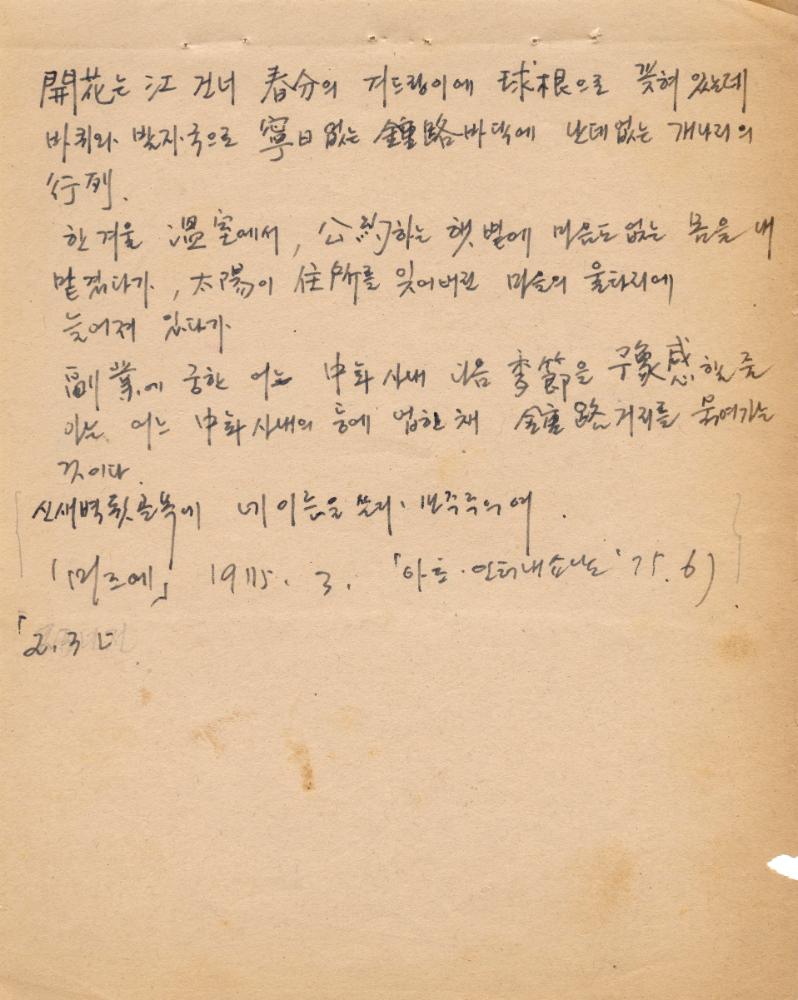 開花는 江 건너 春分의 겨드랑이에 球根으로 꽂혀 있는데
바퀴와 발자국으로 寧日 없는 鍾路 바닥에 난데없는 개나리의
行列.
한겨울 温室에서, 公約하는 햇볕에 마음도 없는 몸을 내
맡겼다가, 太陽이 住所를 잊어버린 마을의 울타리에
늘어져 있다가
副業에 궁한 어느 中年 사내 다음 季節을 予感할 줄
아는 어느 中年 사내의 등에 업힌 채 鍾路 거리를 묶여가는
것이다.
신새벽 뒷골목에 네 이름을 쓴다. 민주주의여.
75. 6)